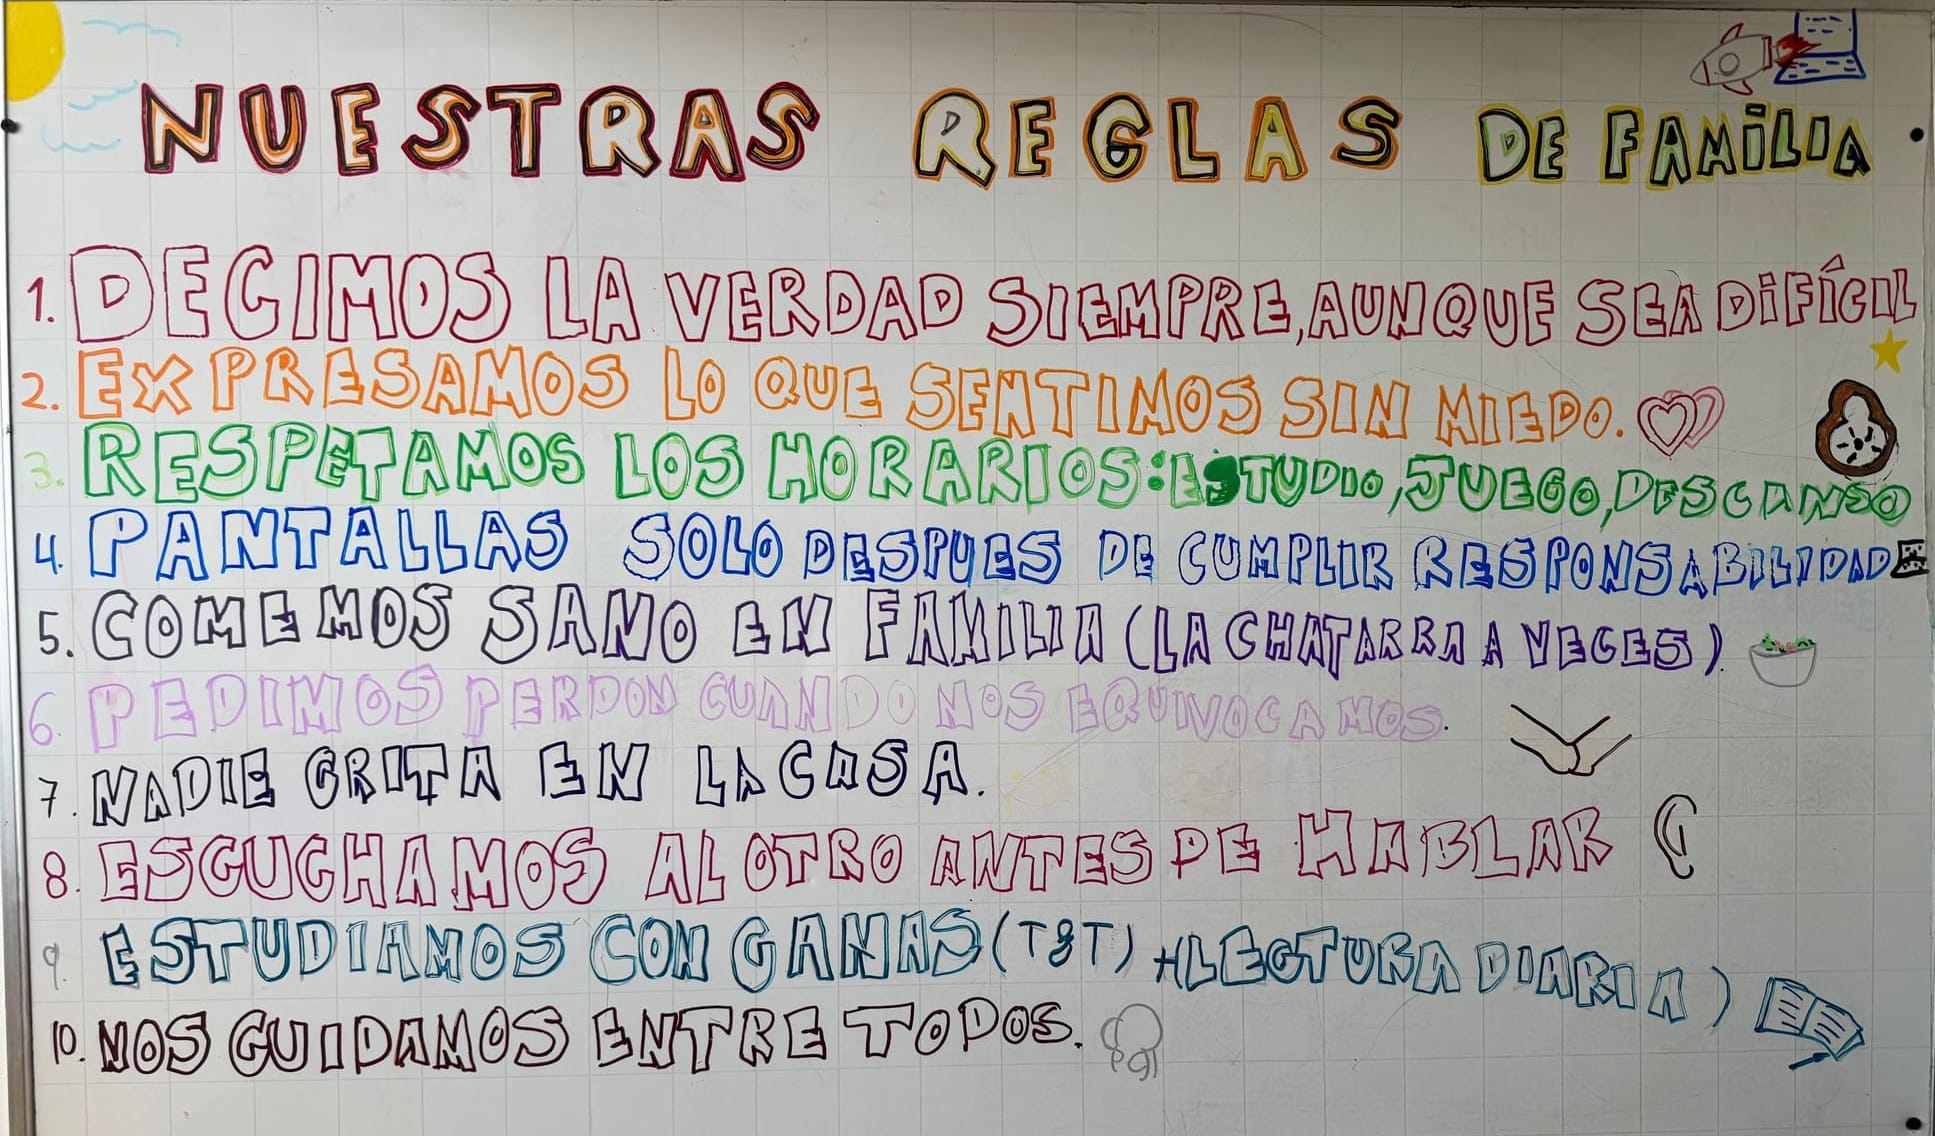 NUESTRAS REGLAS DE FAMILIA
1. DECIMOS LA VERDAD SIEMPRE, AUNQUE SEA DIFÍCIL
2. EXPRESAMOS LO QUE SENTIMOS SIN MIEDO.
3. RESPETAMOS LOS HORARIOS: ESTUDIO, JUEGO, DESCANSO
4. PANTALLAS SOLO DESPUES DE CUMPLIR RESPONSABILIDAD
5. COMEMOS SANO EN FAMILIA (LA CHATARRA A VECES).
6. PEDIMOS PERDON CUANDO NOS EQUIVOCAMOS.
7. NADIE GRITA EN LA CASA.
8. ESCUCHAMOS AL OTRO ANTES DE HABLAR
9. ESTUDIAMOS CON GANAS (T&T) + LECTURA DIARIA)
10. NOS CUIDAMOS ENTRE TODOS.